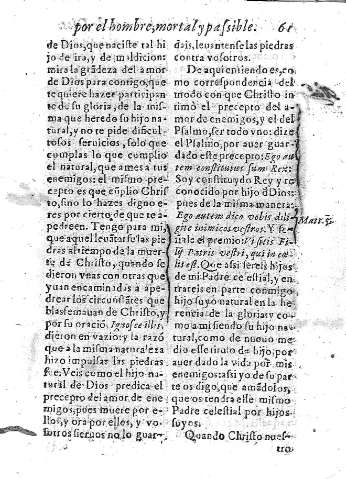 por el hombre, mortal y passible. 61
de Dios, que naciste tal hi
jo de ira, y de maldicion:
mira la grãdeza del amor
de Dios para contigo, que
te quiere hazer participan
te de su gloria, de la mis-
ma que heredo su hijo na-
tural, y no te pide dificul-
tosos seruicios, solo que
cumplas lo que cumplio
el natural, que ames a tus
enemigos: el mismo pre-
cepto es que cũplio Chris
to, sino lo hazes digno e-
res por cierto, de que te a-
pedreen. Tengo para mi,
que aquel leuãtarse las pie
dras al tiempo de la muer-
te de Christo, quando se
dieron vnas con otras que
yuan encaminadas a ape-
drear los circunstãtes que
blasfemauan de Christo, y
por su oració, Ignosce illis,
dieron en vazio: y la razó
que a la misma naturaleza
hizo impulsar las piedras
fue. Veis como el hijo na-
tural de Dios predica el
precepto del amor de ene
migos, pues muere por e-
llos, y ora por ellos, y vo-
sotros sieruos no lo guar-
dais, leuantense las piedras
contra vosotros.
De aqui entiendo es, co
mo correspondencia del
modo con que Christo in
timò el precepto del a-
mor de enemigos, y el del
Psalmo, ser todo vno: dize
el Psalmo, por auer guar-
dado este precepto: Ego au
tem constitutus sum Rex:
Soy constituydo Rey y re
conocido por hijo d Dios:
pues de la misma manera:
Ego autem dico vobis dili-
gite inimicos vestros. Y se-
ñale el premio: Vt sitis Fi-
lij Patris vestri, qui in cæ-
lis est. Que assi sereis hijos
de mi Padre celestial, y en
trareis en parte conmigo,
hijo suyo natural en la he-
rencia de la gloria: y co-
mo a mi siendo su hijo na-
tural, como de nueuo me
dio esse titulo de hijo, por
auer dado la vida por mis
enemigos: assi yo de su par
te os digo, que amãdolos,
que os tendra esse mismo
Padre celestial por hijos
suyos.
Quando Christo nues-
tro
Matt. 5.